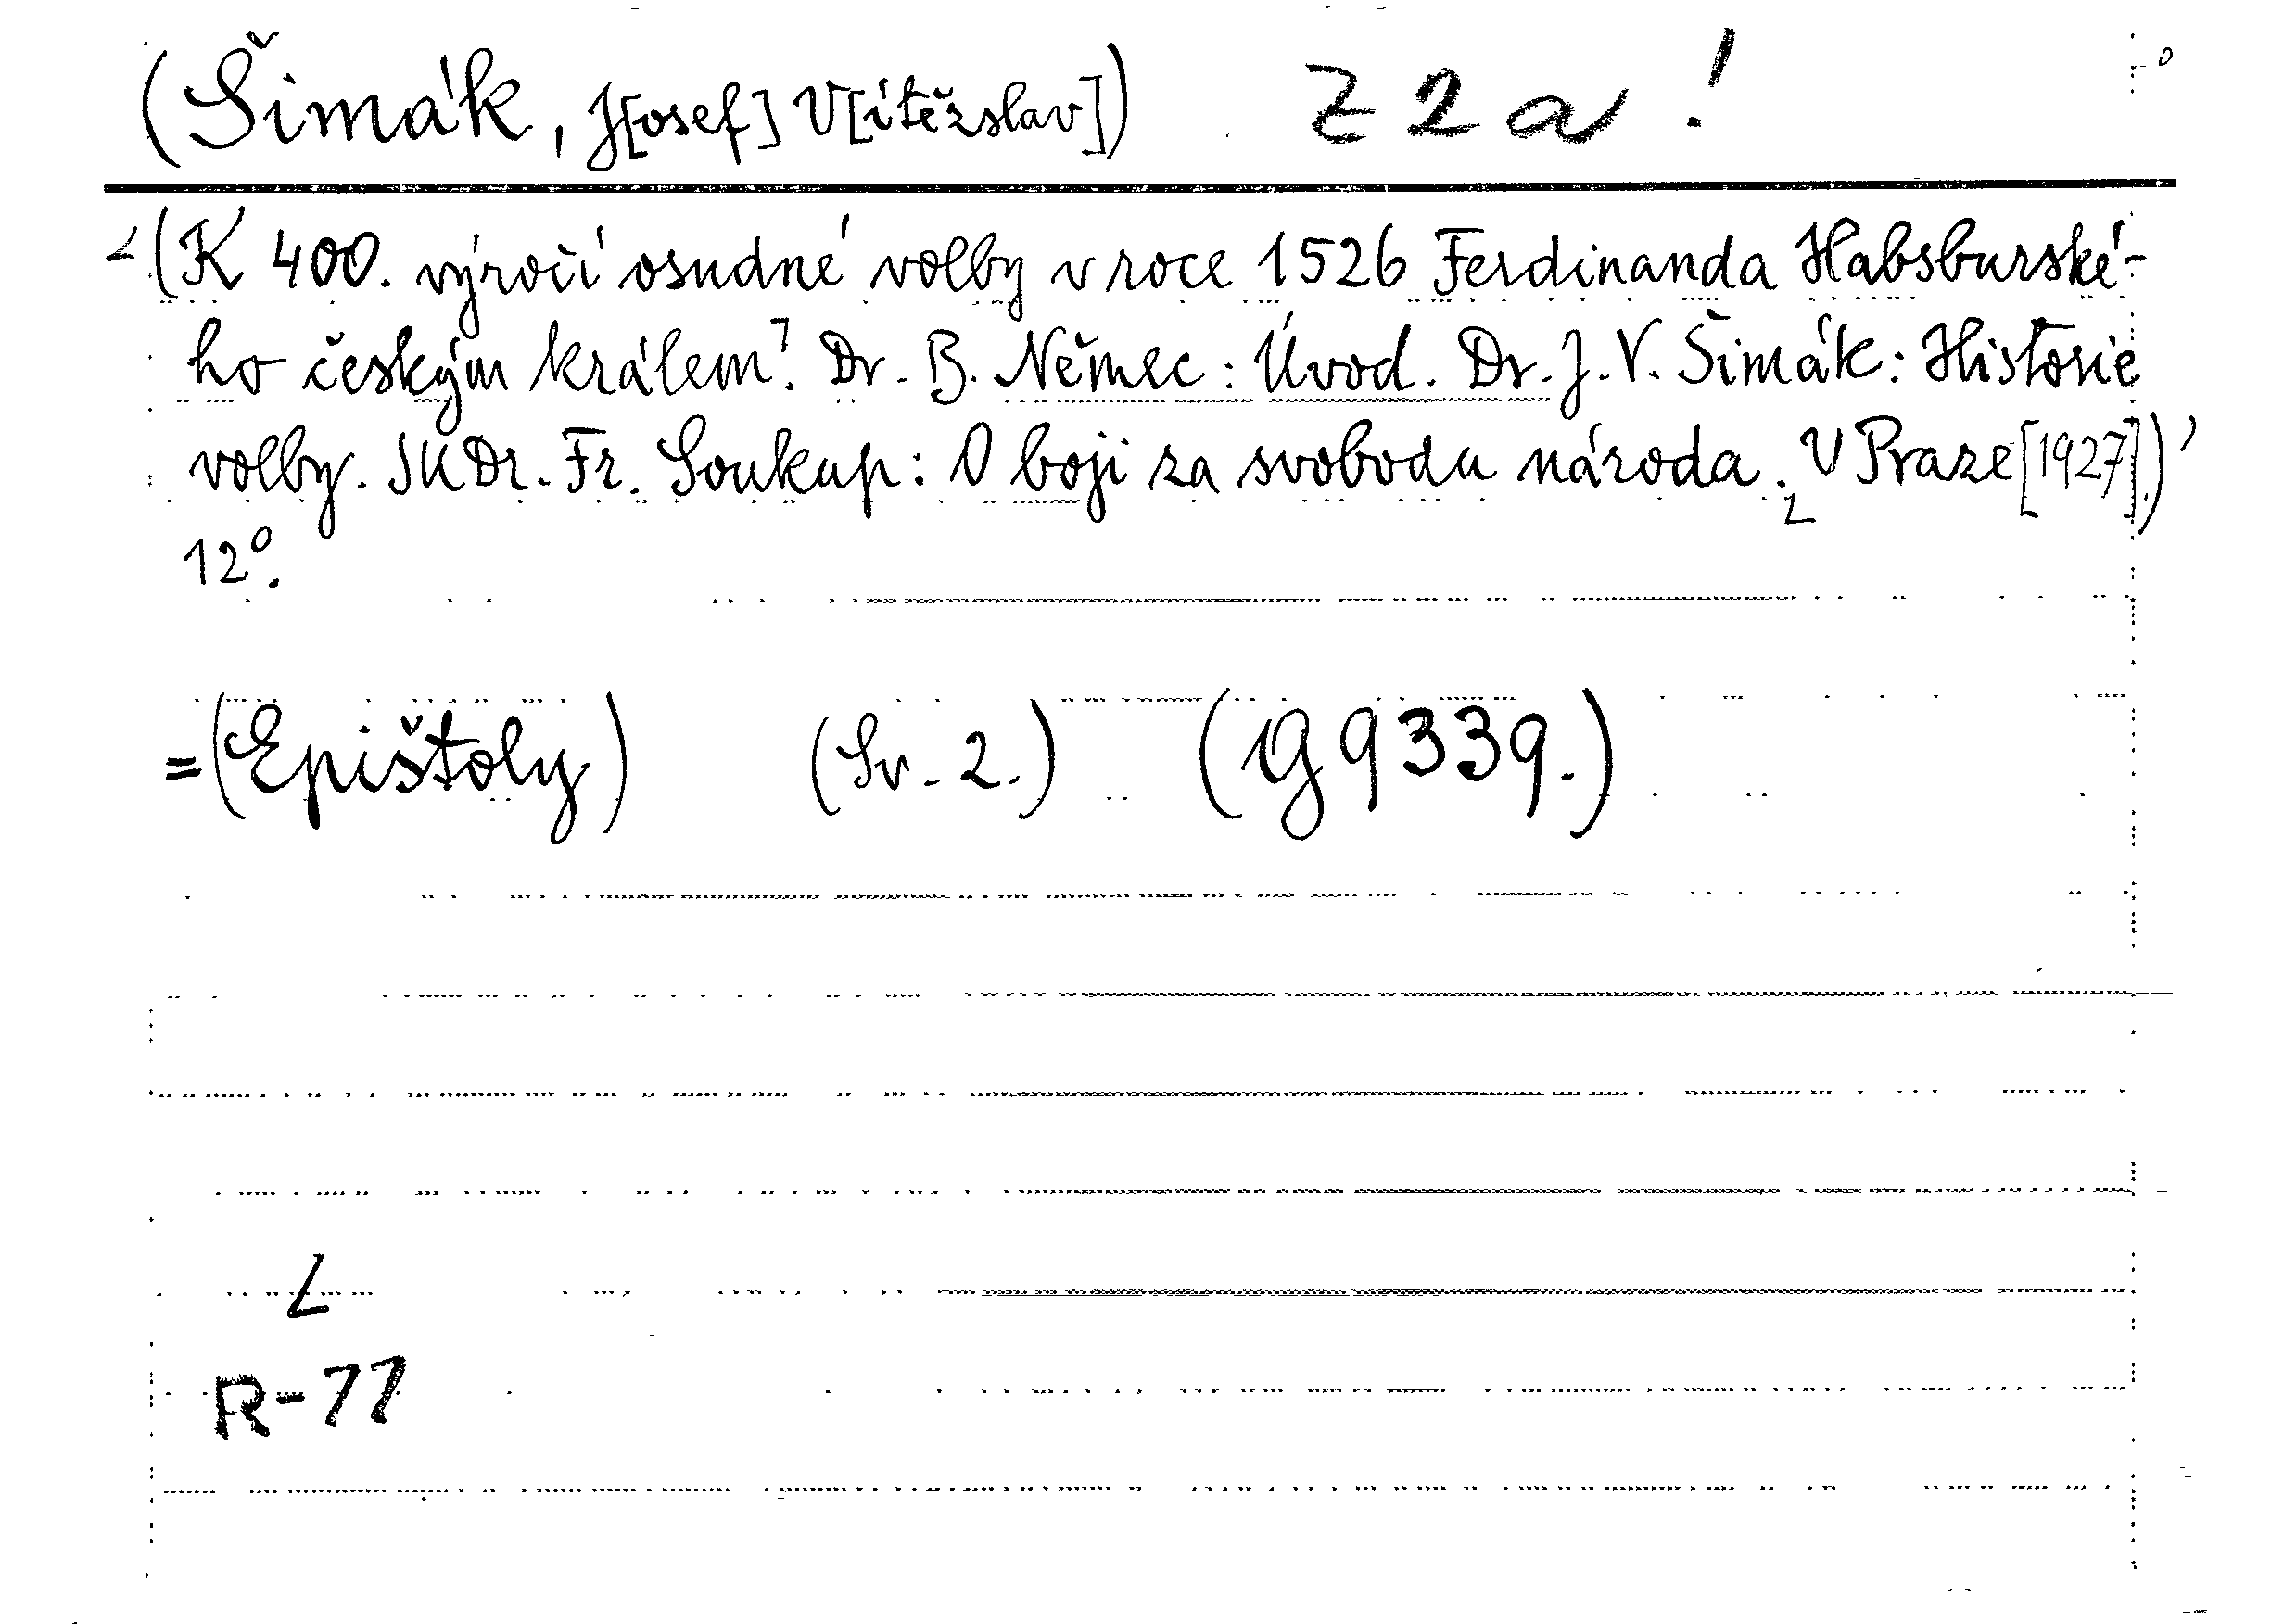 (Šimák, J[osef] V[ítězslav]) Z 2 a !
(K 400. výročí osudné volby v roce 1526 Ferdinanda Habsburské-
ho českým králem! Dr. B. Němec: Úvod. Dr. J. V. Šimák: Historie
volby. JUDr. Fr. Soukup: O boji za svobodu národa. V Praze [1927].)
12°.
=(Epištoly) (Sv. 2.) (G 9339.)
L
R-77